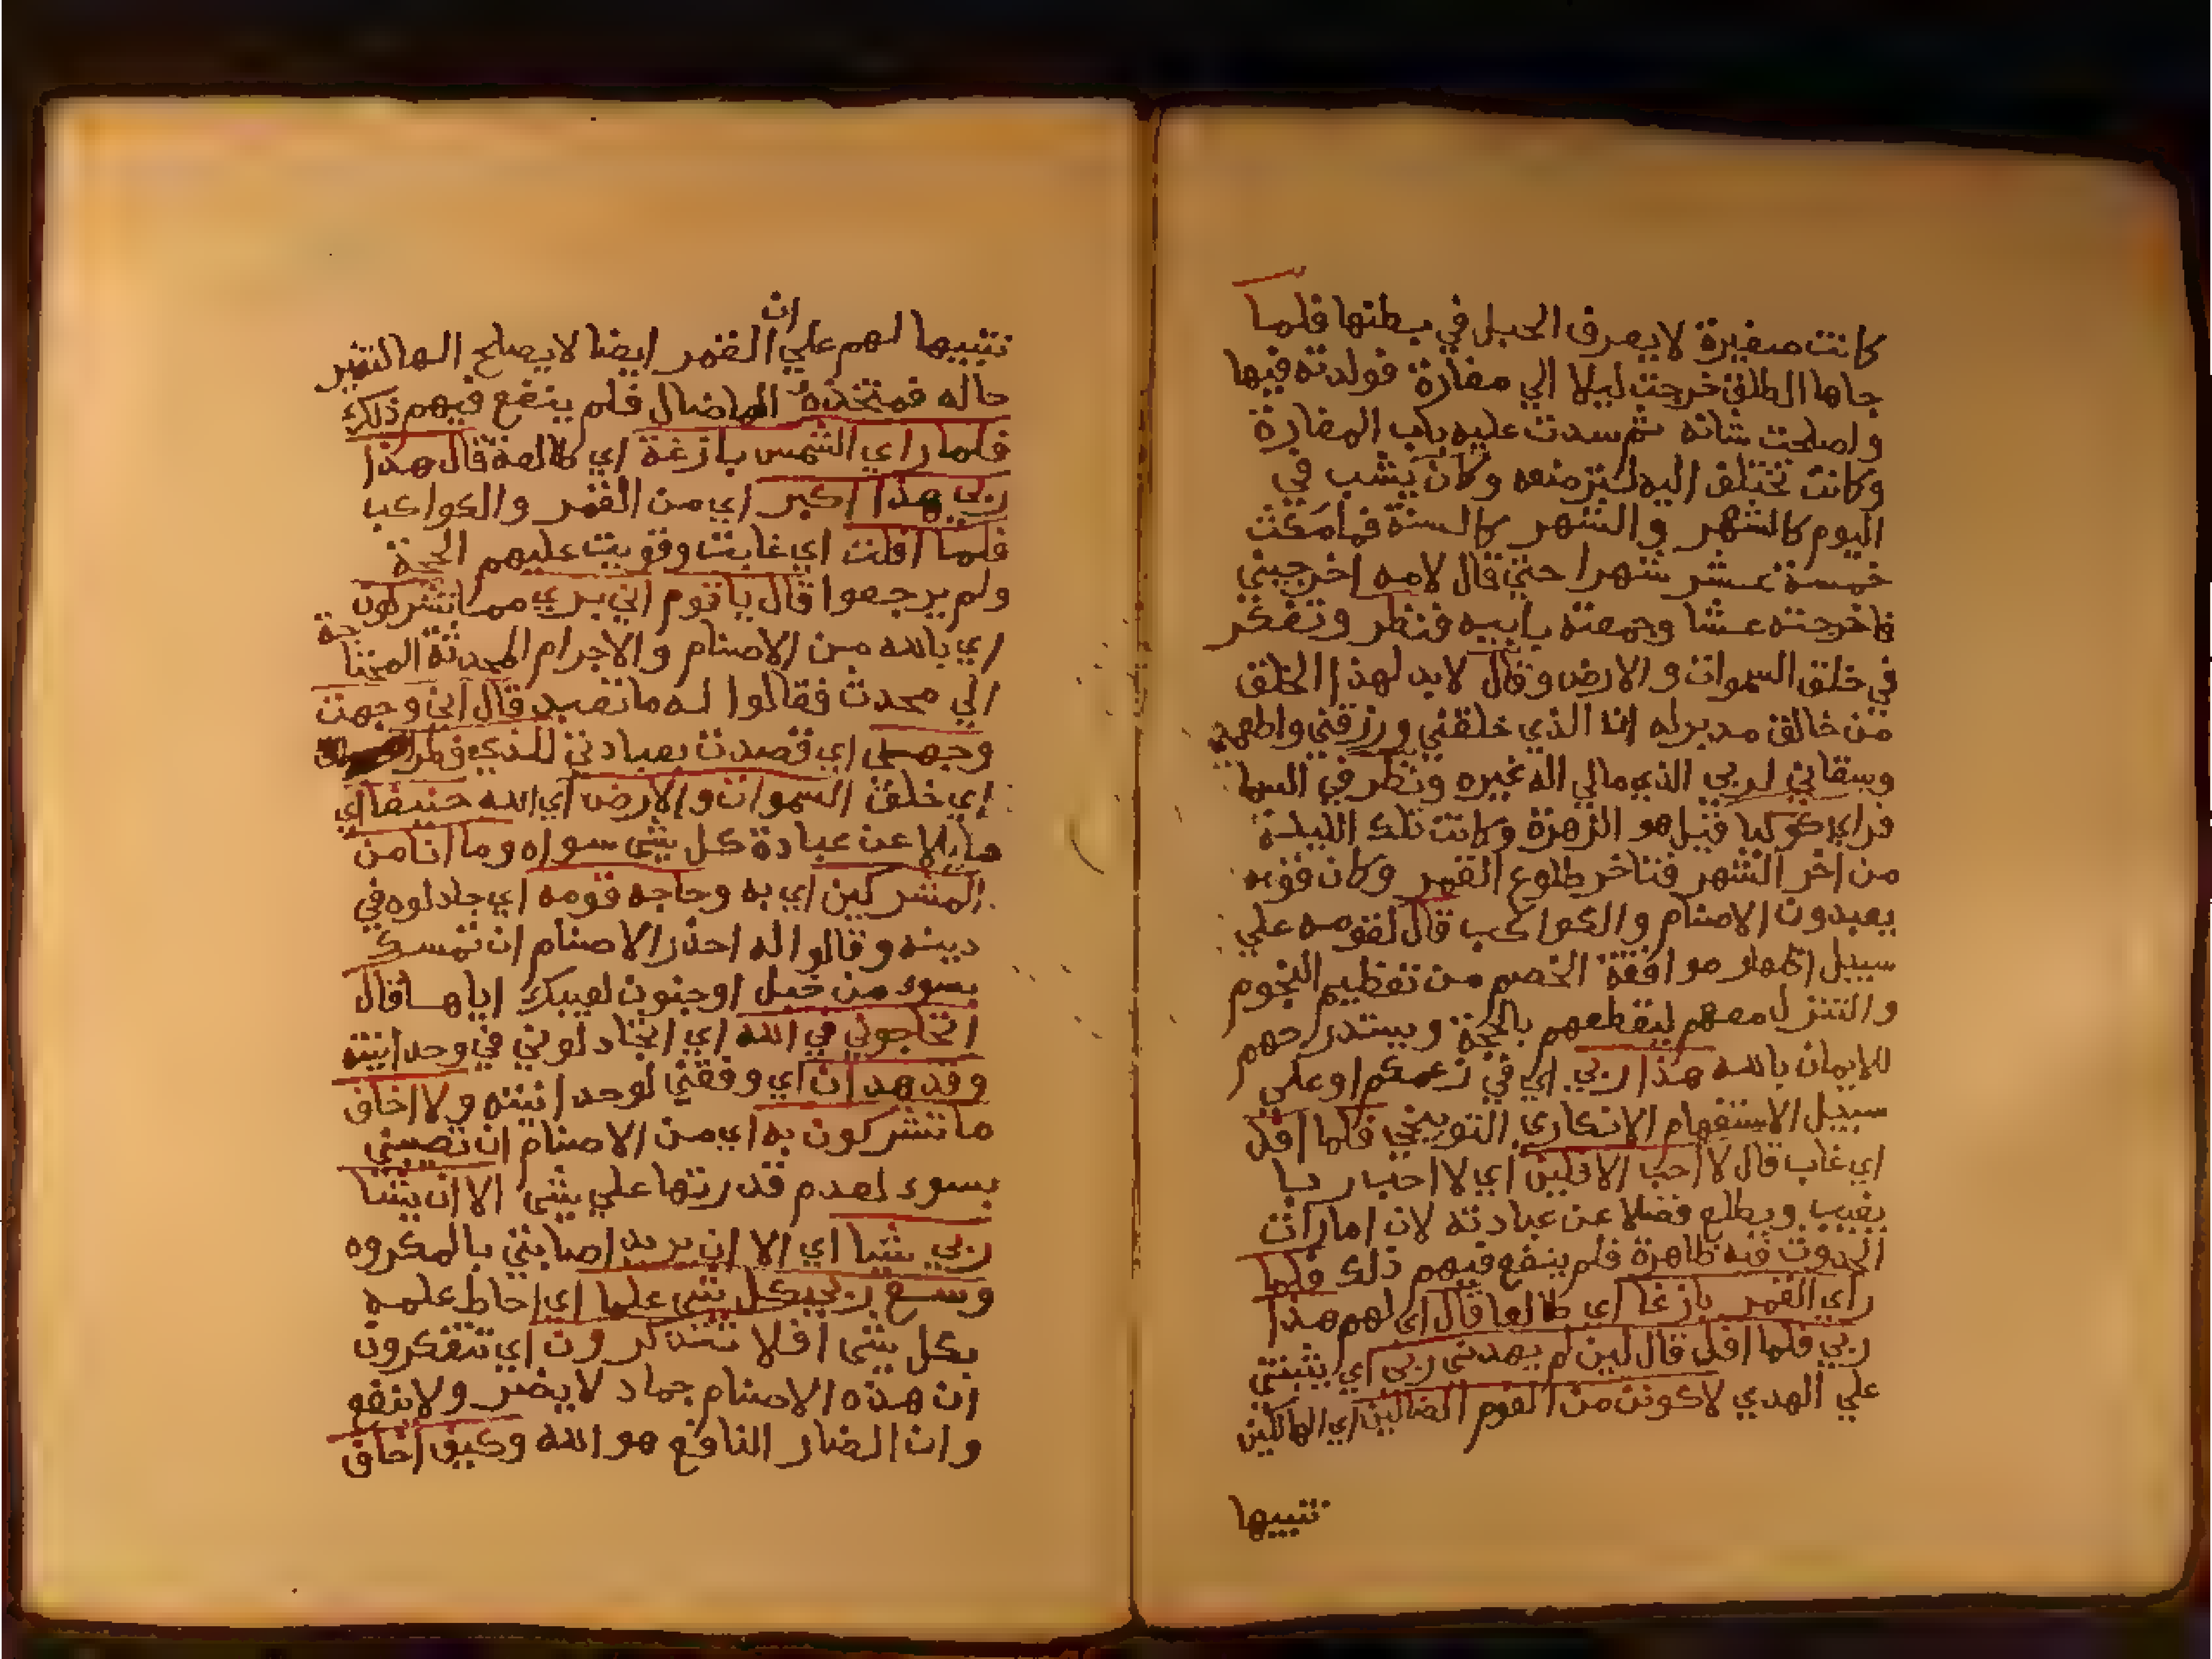 كانت صغيرة لا يعرف الحبل في بطنها فلما
جاها الطلق خرجت ليلا الي مغارة فولدته فيها
واصلحت شانه ثم سدت عليه باب المغارة
وكانت تختلف اليه لترضعه وكان يشب في
اليوم كالشهر والشهر كالسنة فما مكث
خمسة عشر شهرا حتي قال لامه اخرجيني
فاخرجته عشا وجمعته بابيه فنظر وتفكر
في خلق السموات والارض وقال لابد لهذا الخلق
من خالق مدبر له ان الذي خلقني ورزقني واطعمني
وسقاني لربي الذي مالي اله غيره ونظر في السما
فراي كوكبا قيل هو الزهرة وكانت تلك الليلة
من اخر الشهر فتاخر طلوع القمر وكان قومه
يعبدون الاصنام والكواكب قال لقومه علي
سبيل اظهار موافقة الخصم من تعظيم النجوم
والتنزل معهم ليقطعهم بالحجة ويستدرجهم
للايمان بالله هذا ربي اي في زعمكم او علي
سبيل الاستفهام الانكاري التوبيخي فلما افل
اي غاب قال لا احب الافلين اي لا احب ربا
يغيب ويطلع فضلا عن عبادته لان امارات
الحدوث فيه ظاهرة فلم ينفع فيهم ذلك فلما
راي القمر بازغا اي طالعا قال اي لهم هذا
ربي فلما افل قال لين لم يهدني ربي اي يثبتني
علي الهدي لاكونن من القوم الضالين اي الهالكين
تنبيها
تنبيها لهم علي ان القمر ايضا لا يصلح الها لتغير
حاله فمتخذه الها ضال فلم ينفع فيهم ذلك
فلما راي الشمس بازغة اي طالعة قال هذا
ربي هذا اكبر اي من القمر والكواكب
فلما افلت اي غابت وقويت عليهم الحجة
ولم يرجعوا قال يا قوم اني بري مما تشركون
اي بالله من الاصنام والاجرام المحدثة المحتاجة
الي محدث فقالوا له ما تعبد قال اني وجهت
وجهي اي قصدت بعبادتي للذي فطر
اي خلق السموات والارض اي الله حنيفا اي
مايلا عن عبادة كل شي سواه وما انا من
المشركين اي به وحاجه قومه اي جادلوه في
دينه وقالوا له احذر الاصنام ان تمسك
بسوء من خبل او جنون لعيبك اياها قال
اتحاجوني في الله اي اتجادلوني في وحدانيته
وقد هدان اي وفقني لوحدانيته ولا اخاف
ما تشركون به اي من الاصنام ان تصبني
بسوء لعدم قدرتها علي شي الا ان يشا
ربي شيا اي الا ان يريد اصابتي بالمكروه
وسع ربي كل شي علما اي احاط علمه
بكل شي افلا تتذكرون اي تتفكرون
ان هذه الاصنام جماد لا يضر ولا ينفع
وان الضار النافع هو الله وكيف اخاف